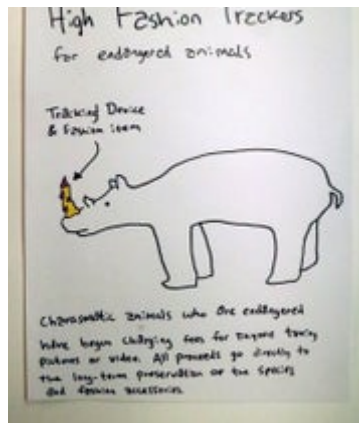 High Fashion Trackers
for endangered animals
Tracking Device
& Fashion item
Charasmatic animals who are endangered
have begun charging fees for anyone taking
pictures or video. All proceeds go directly to
the long-term preservation of the species
and fashion accessories